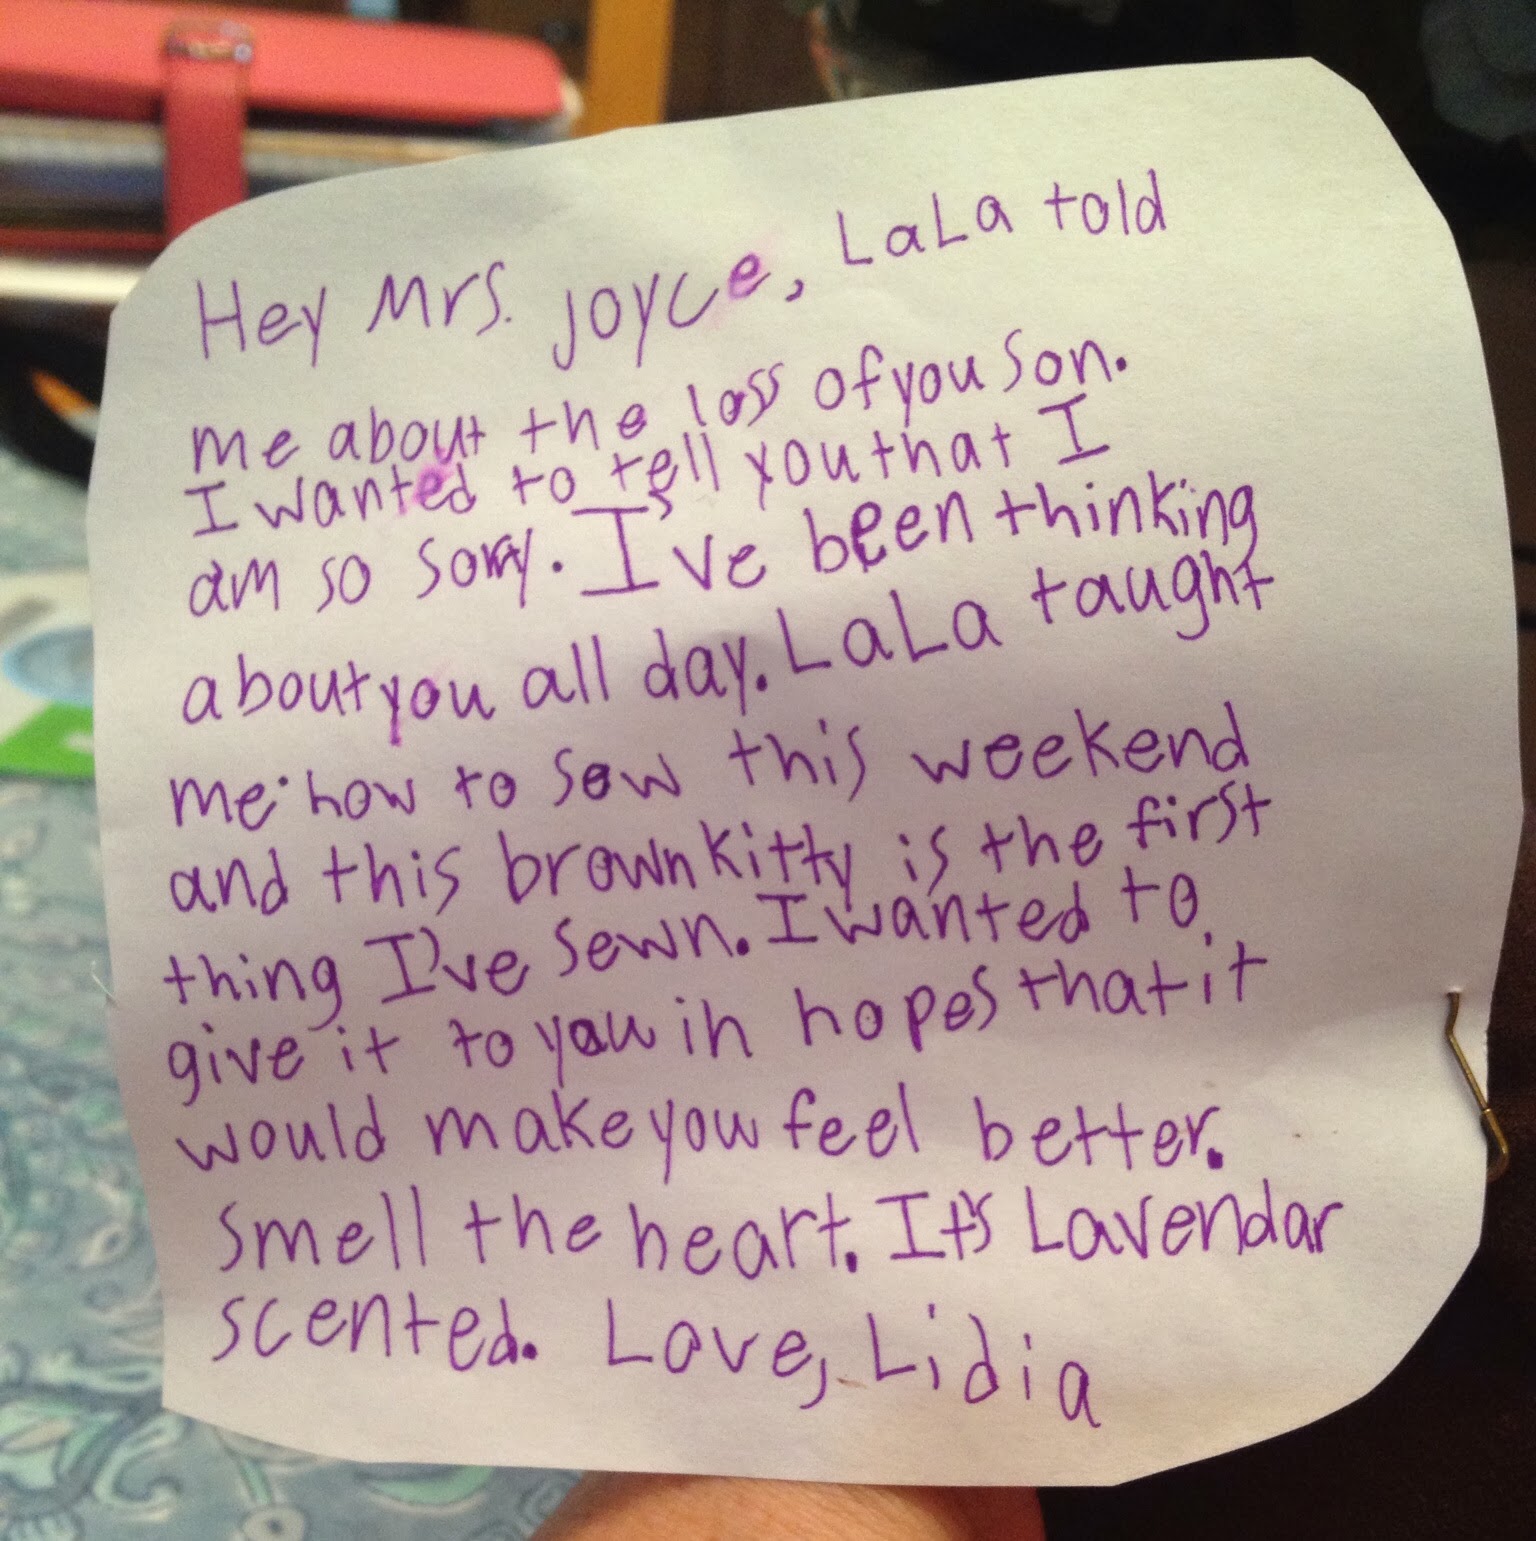 Hey Mrs. Joyce, LaLa told
me about the loss of you son.
I wanted to tell you that I
am so sorry. I've been thinking
about you all day. LaLa taught
me how to sew this weekend
and this brown kitty is the first
thing I've sewn. I wanted to
give it to you in hopes that it
would make you feel better.
Smell the heart. It's Lavendar
scented. Love, Lidia